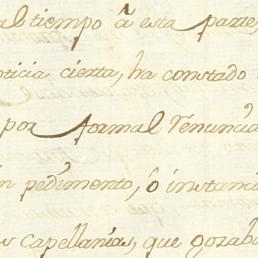 al tiempo â esta parte,
oticia cierta, ha constado
por formal renuncia
n pedimento, ô instanci
s capellanias, que gozab